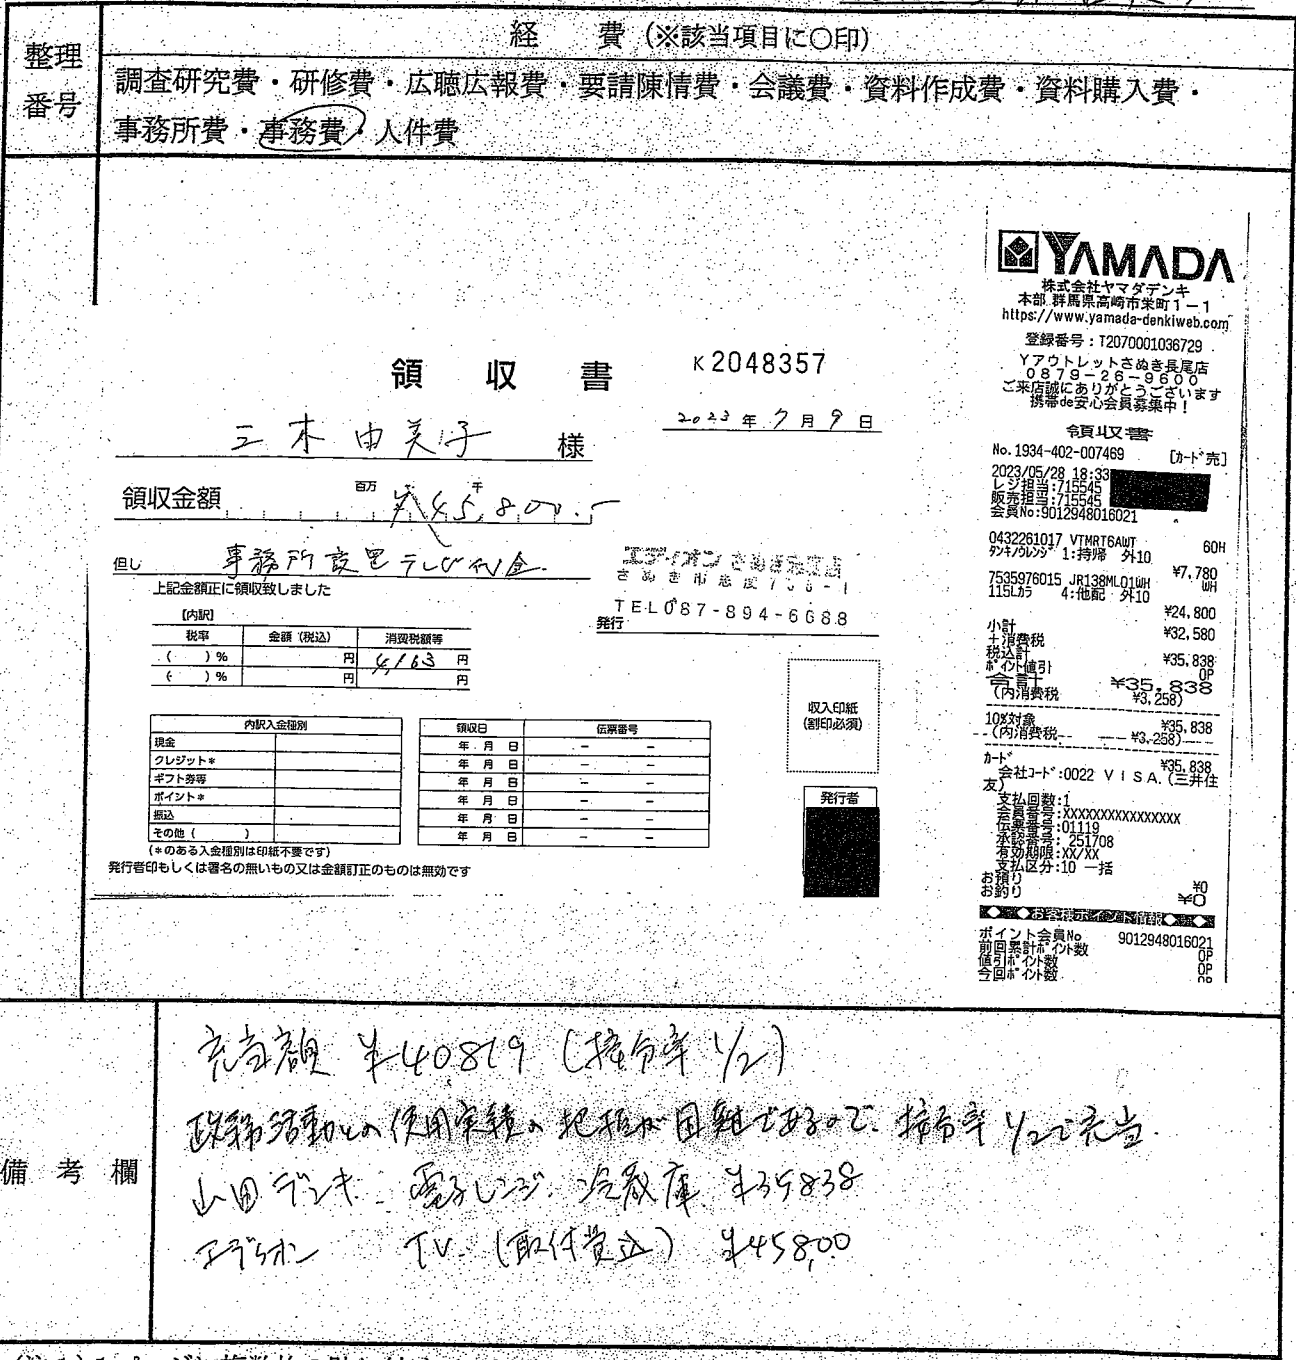 整理
番号
経 費 (※該当項目に○印)
調査研究費・研修費・広聴広報費・要請陳情費・会議費・資料作成費・資料購入費・
事務所費・事務費・人件費
領 収 書
K2048357
2023年 7月 9日
三木由美子 様
領収金額 百万 千 ¥45,800.-
但し 事務所設置テレビ代金
上記金額正に領収致しました
エディオン さぬき志度店
さぬき市志度
TEL087-894-6688
発行
【内訳】
税率 金額(税込) 消費税額等
( )% 円 4,163 円
( )% 円 円
収入印紙
(割印必須)
内訳入金種別
現金
クレジット*
ギフト券等
ポイント*
振込
その他( )
(*のある入金種別は印紙不要です)
領収日 伝票番号
年 月 日 - -
年 月 日 - -
年 月 日 - -
年 月 日 - -
年 月 日 - -
年 月 日 - -
発行者
発行者印もしくは署名の無いもの又は金額訂正のものは無効です
YAMADA
株式会社ヤマダデンキ
本部 群馬県高崎市栄町1-1
https://www.yamada-denkiweb.com
登録番号:T2070001036729
Yアウトレットさぬき長尾店
0879-26-9600
ご来店誠にありがとうございます
携帯de安心会員募集中!
領収書
No.1934-402-007469 [カード売]
2023/05/28 18:33
レジ担当:715545
販売担当:715545
会員No:9012948016021
0432261017 VTMRT6AWT 60H
タンキノウレンジ 1:持帰 外10
¥7,780
7535976015 JR138ML01WH WH
115Lカラ 4:他配 外10
¥24,800
小計 ¥32,580
+消費税
税込計 ¥35,838
ポイント値引 0P
合計 ¥35,838
(内消費税 ¥3,258)
10%対象 ¥35,838
(内消費税 ¥3,258)
カード ¥35,838
会社コード:0022 VISA.(三井住
友)
支払回数:1
会員番号:XXXXXXXXXXXXXXXX
伝票番号:01119
承認番号: 251708
有効期限:XX/XX
支払区分:10 一括
お預り ¥0
お釣り ¥0
お客様ポイント情報
ポイント会員No 9012948016021
前回累計ポイント数 0P
値引ポイント数 0P
今回ポイント数 0P
備考欄
充当額 ¥40,819 (按分率 1/2)
政務活動との使用実績の把握が困難であるので、按分率1/2で充当.
山田デンキ 電子レンジ. 冷蔵庫 ¥35838
エディオン TV. (取付費込) ¥458,00